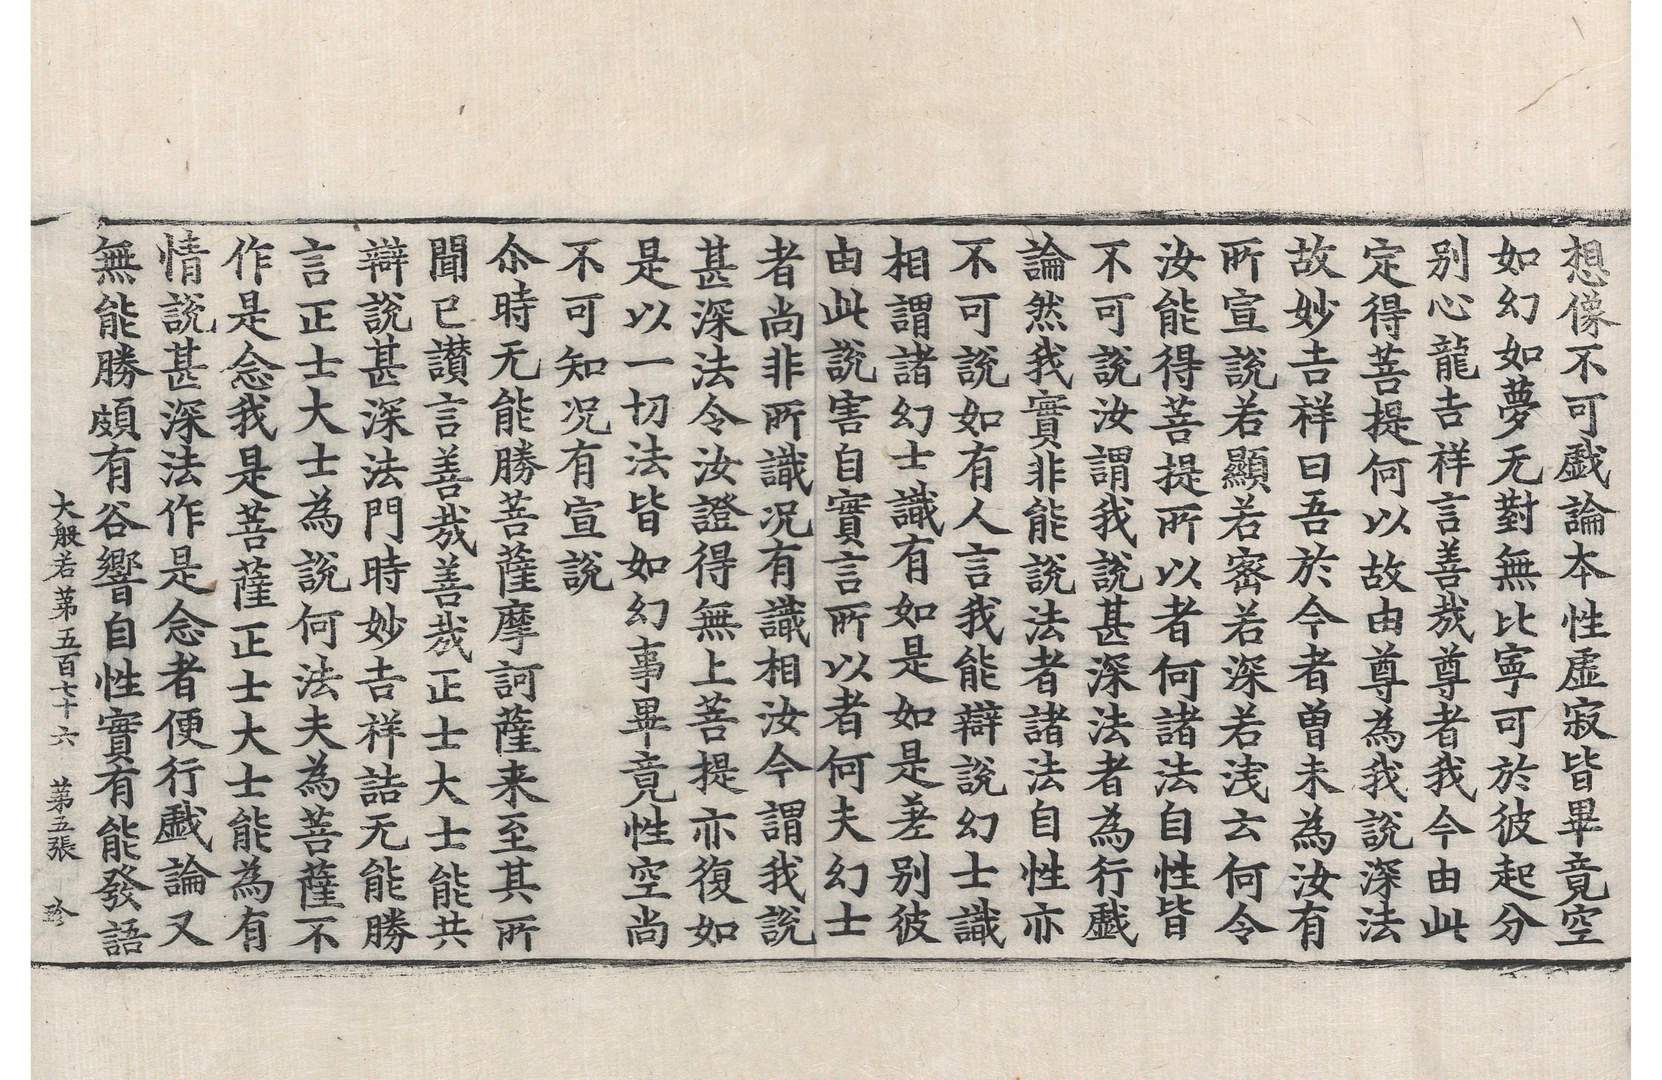 想像不可戱論本性虛寂皆畢竟空
如幻如夢无對無比寧可於彼起分
別心龍吉祥言善㢤尊者我今由此
定得菩提何以故由尊為我說深法
故妙吉祥曰吾於今者曾未為汝有
所宣說若顯若密若深若淺云何令
汝能得菩提所以者何諸法自性皆
不可說汝謂我說甚深法者為行戱
論然我實非能說法者諸法自性亦
不可說如有人言我能辯說幻士識
相謂諸幻士識有如是如是差別彼
由此說害自實言所以者何夫幻士
者尚非所識况有識相汝今謂我說
甚深法令汝證得無上菩提亦復如
是以一切法皆如幻事畢竟性空尚
不可知况有宣說
尒時无能勝菩薩摩訶薩来至其所
聞已讃言善㢤善㢤正士大士能共
辯說甚深法門時妙吉祥詰无能勝
言正士大士為說何法夫為菩薩不
作是念我是菩薩正士大士能為有
情說甚深法作是念者便行戱論又
無能勝頗有谷響自性實有能發語
大般若第五百七十六　第五張　玲